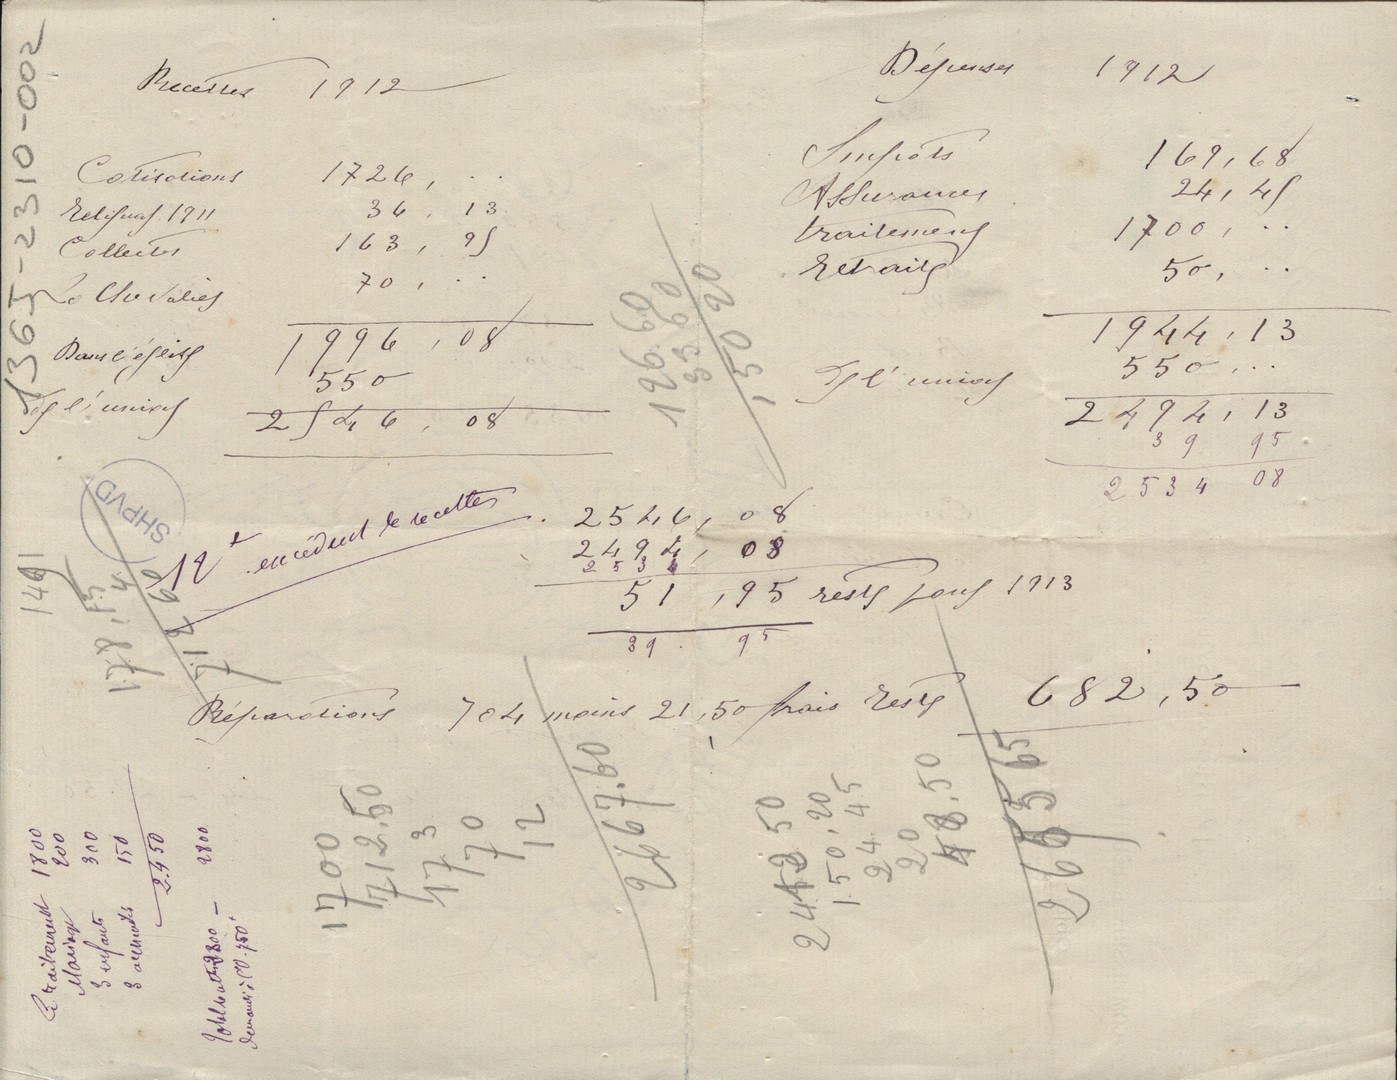 1365-2310-002
Recettes 1912
Cotisations 1726, ..
1911 36, 13
Collectes 163, 95
70, ..
1996, 08
550
De l'union
2546, 08
Dépenses 1912
Impôts 169, 68
Assurances 24, 45
traitement 1700, ..
Retraite 50, ..
1944, 13
De l'union 550, ..
2494, 13
39 95
2534 08
126.60
33.60
150 20
SHPVD
12 excédent de recettes
2546, 08
2494, 08
2534
51, 95 reste pour 1913
39. 95
178.15
4
60
712
Réparations 704 moins 21,50 frais reste 682,50
Traitement 1800
Mariage 200
3 enfants 300
3 150
2450
2800
1700
712.50
173
70
12
2667.60
50
150,20
24.45
20
48.50
2665 65